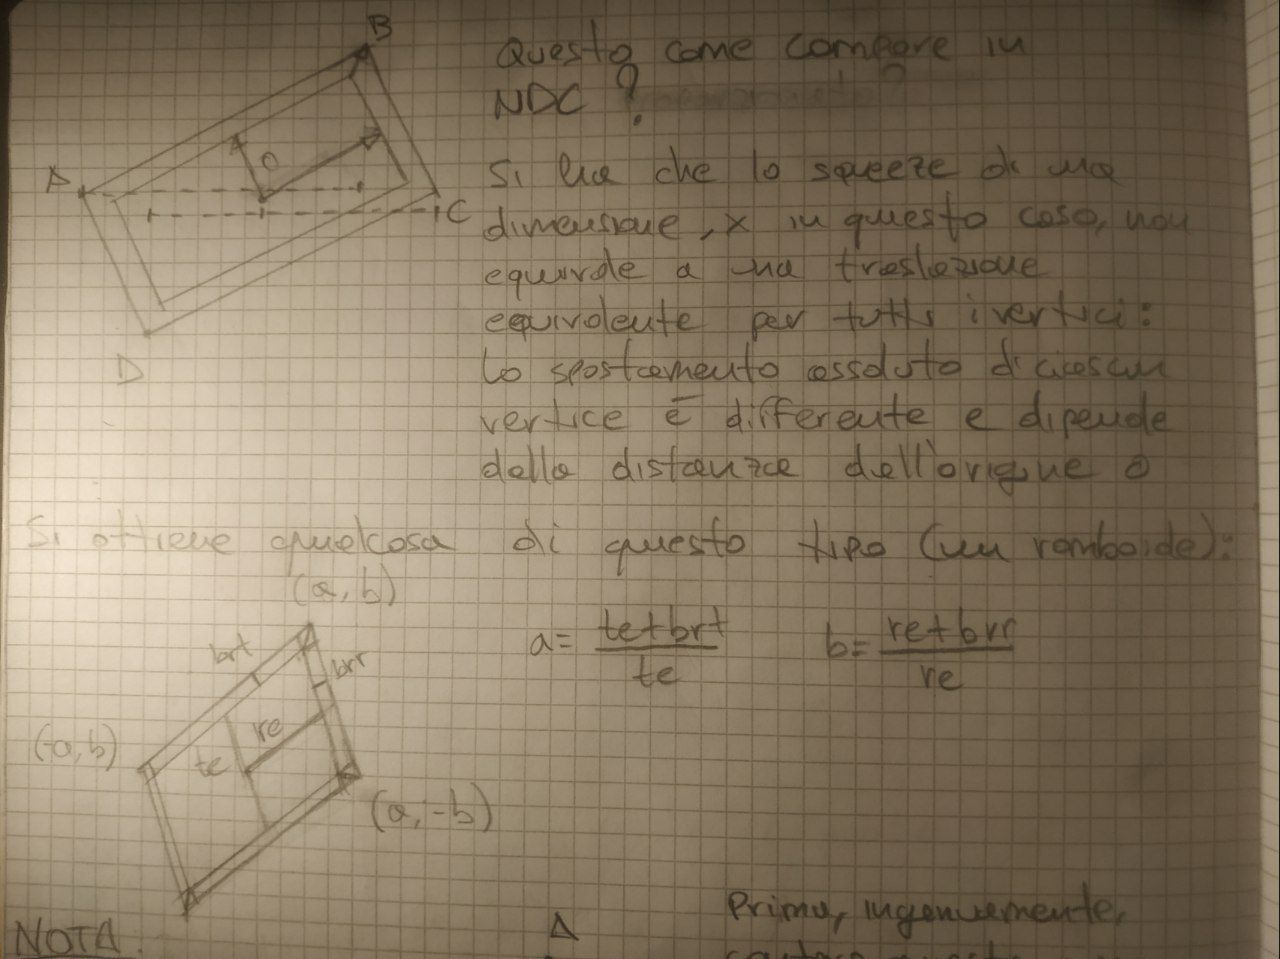 B
Questo come compare in
NDC?
A
O
C
D
Si ha che lo squeeze di una
dimensione, x in questo caso, non
equivale a una traslazione
equivalente per tutti i vertici:
lo spostamento assoluto di ciascun
vertice è differente e dipende
dalla distanza dall'origine O
Si ottiene qualcosa di questo tipo (un romboide):
(a, b)
a = te+brt / te
b = re+brr / re
brt
brr
(-a, b)
re
te
(a, -b)
NOTA
A
Prima, ingenuamente,